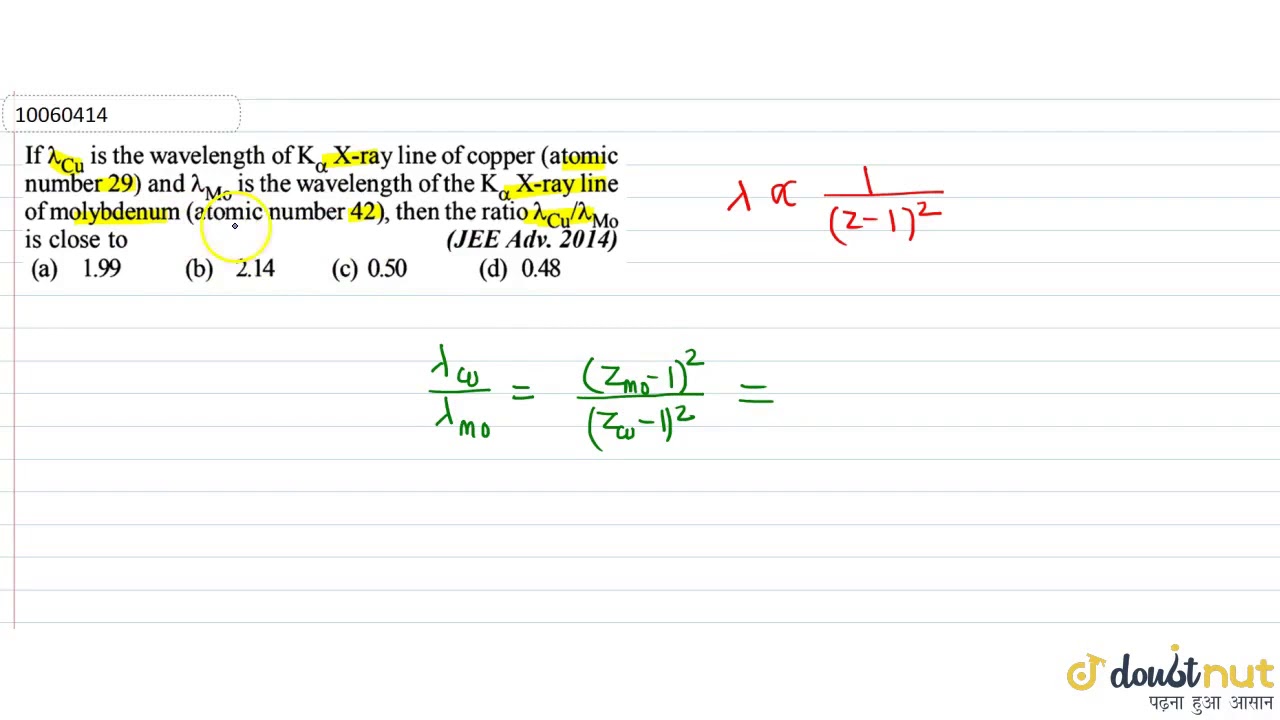 10060414
If λ_Cu is the wavelength of K_α X-ray line of copper (atomic
number 29) and λ_Mo is the wavelength of the K_α X-ray line
of molybdenum (atomic number 42), then the ratio λ_Cu/λ_Mo
is close to (JEE Adv. 2014)
(a) 1.99 (b) 2.14 (c) 0.50 (d) 0.48
λ ∝ 1/(z-1)²
λ_cu/λ_mo = (z_mo-1)²/(z_cu-1)² =
doubtnut
पढ़ना हुआ आसान